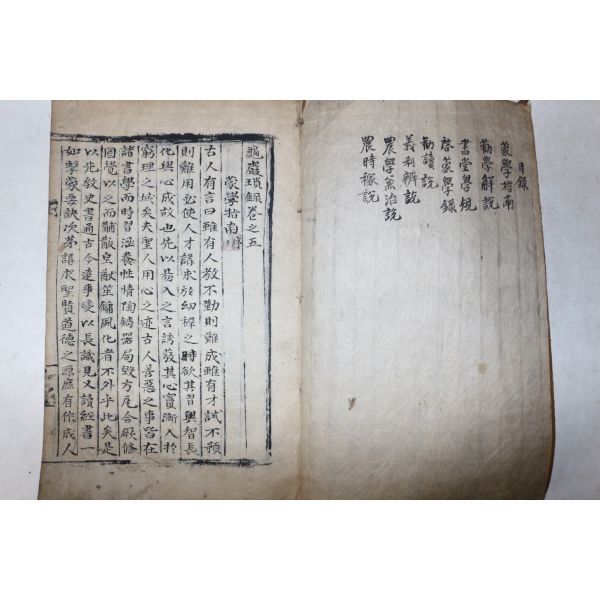 目錄
蒙學指南
勸學解說
書堂學規
啓蒙學錄
勸讀說
義利辨說
農學兼治說
農時稼說
龜巖瑣錄卷之五
蒙學指南序
古人有言曰雖有人敎不勤則難成雖有才試不預
則難用必使人才講求於幼穉之時欲其習與智長
化與心成故也先以易入之言誘發其心竇漸入於
窮理之域矣夫聖人用心之迹古人善惡之事皆在
諸書學而時習涵養性情陶鑄器局毀方瓦合厥修
罔覺以之而黼黻皇猷笙鏞風化者不外乎此矣是
以先敎史書通古今達事變以長識見又讀經書一
如擊蒙要訣次第講求聖賢道德之源庶有作成人